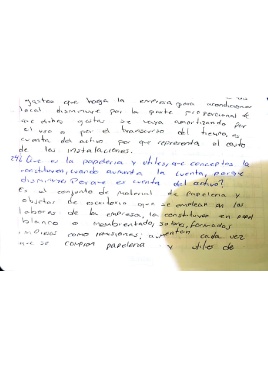 gastos que haga la empresa para acondicionar
local disminuye por la parte proporcional de
que dichos gastos se vaya amortizando por
el uso o por el transcurso del tiempo, es
cuenta del activo por que representa el costo
de las instalaciones.
29¿Que es la papeleria y utiles, que conceptos la
constituyen, cuando aumenta la cuenta, porque
disminuye? Porque es cuenta del activo?
Es el conjunto de material de papeleria y
objetos de escritorio que se emplean en las
labores de la empresa, la constituyen en papel
blanco o membrentado, sobres, formados
impresos como remisiones; aumentan cada vez
que se compran papeleria y utiles de